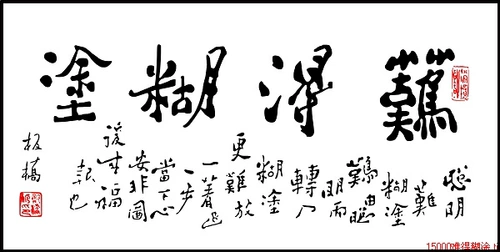 難得糊塗
聰明
難
糊塗
難由聰
明而
轉入
糊塗
更難放
一著退
一步
當下心
安非圖
後來福
報也
板橋